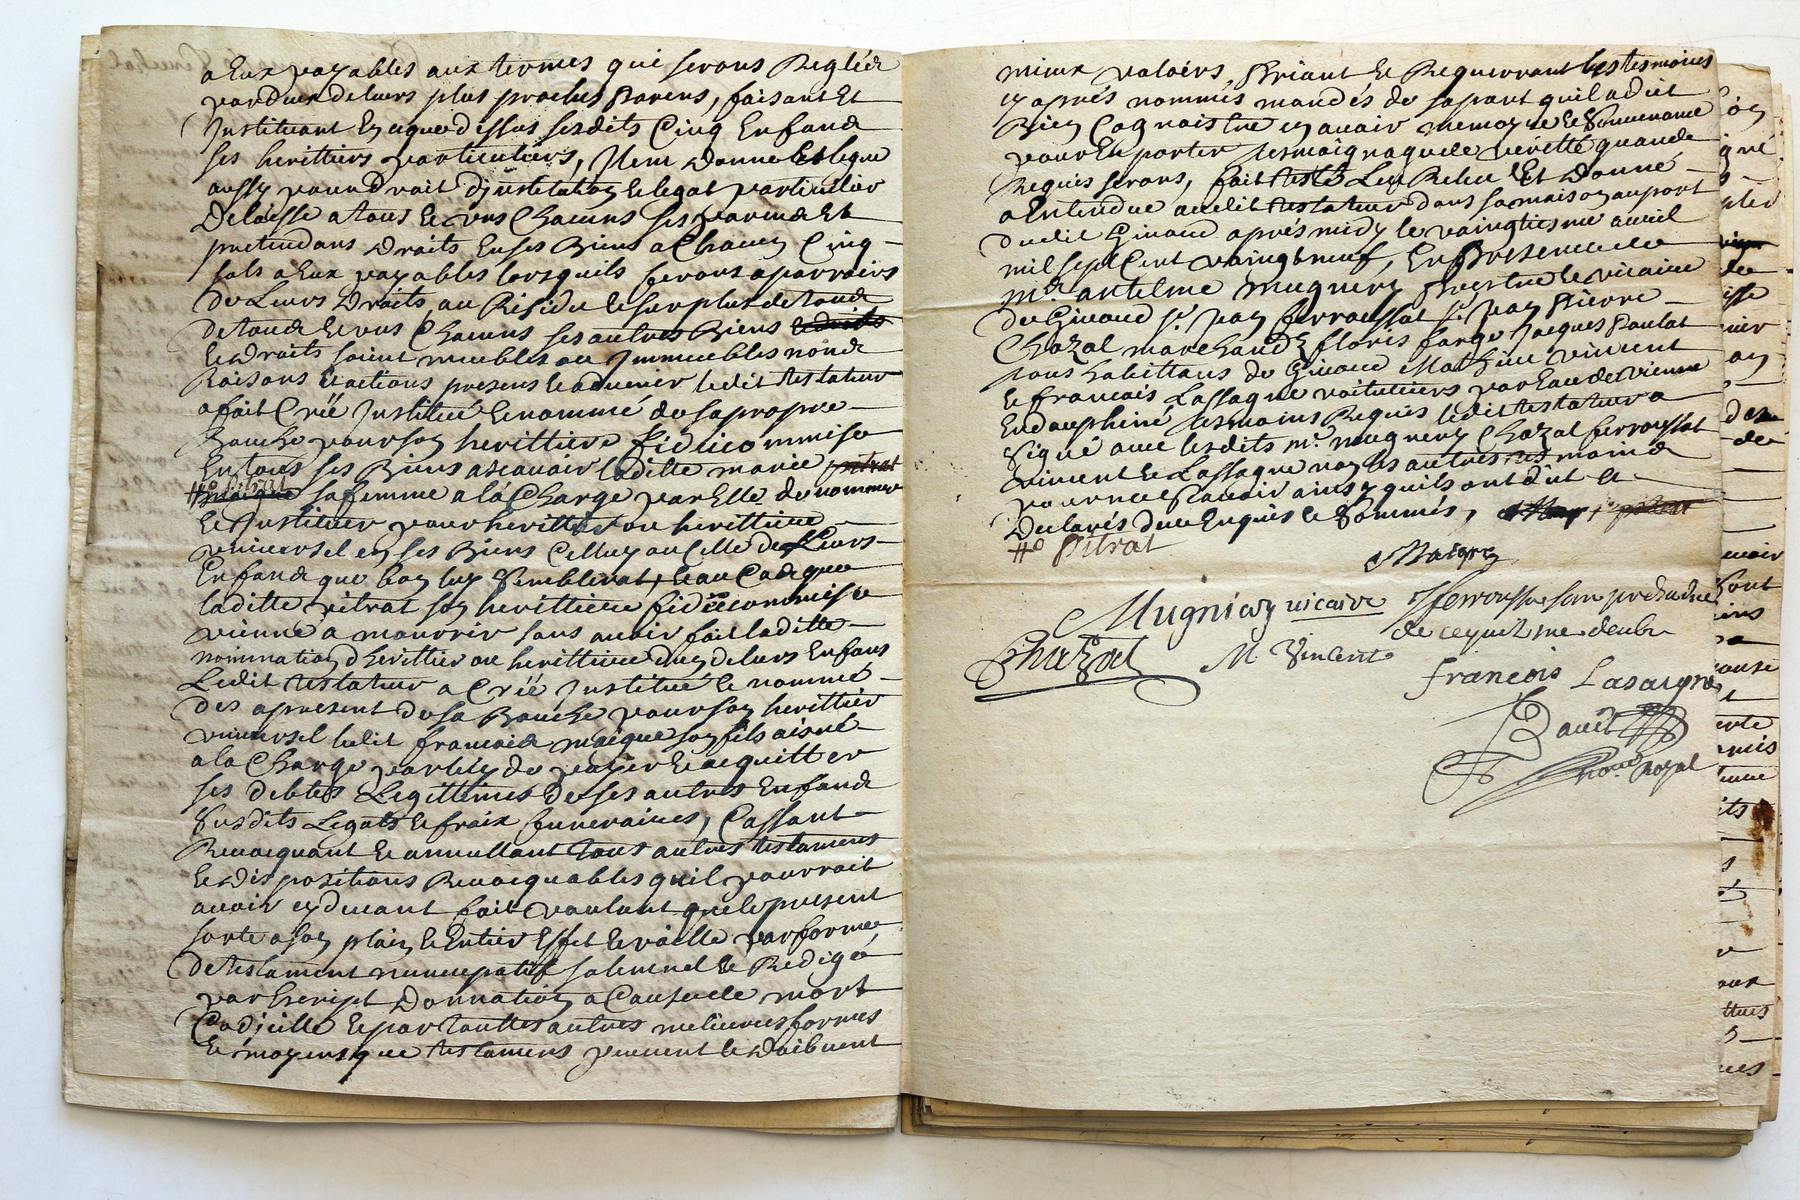 a Eux payables aux termes qui serons Reglés
par deux de leurs plus proches Parens, faisant Et
Instituant En ce que dessus sesdits Cinq Enfans
ses herittiers particuliers, Item donne et legue
aussy par droit d'institution et legat particulier
Delaisse a tous et uns Chacuns ses parens Et
pretendans droits En ses Biens a Chacun Cinq
sols a Eux payables lorsquils ferons aparroirs
de Leurs Droits, au Residu et surplus de tous
de tous et uns Chacuns ses autres Biens et droits
Et droits soient meubles ou Immeubles noms
Raisons et actions presens et advenir ledit testateur
a fait Créé Institué et nommé de sa propre
Bouche pour son herittiere fideicommise
En tous ses Biens ascavoir laditte marie pitrat
#o Pitrat
maigue sa femme a la Charge par Elle de nommer
et Instituer pour herittier ou herittiere
universel en ses Biens Celluy ou Celle de Leurs
Enfans que bon luy Semblerat, et au Cas que
laditte pitrat son herittiere fideicommise
vienne a mourrir sans avoir fait laditte
nomination d'herittier ou herittiere d'un de leurs Enfans
Ledit testateur a Créé Institué et nommé
des apresent de sa Bouche pour son herittier
universel ledit francois maigue son fils aisné
a la Charge par luy de payer et acquitter
ses debtes Legittimes de ses autres Enfans
Susdits Legats et fraix funeraires, Cassant
Revocquant et annullant tous autres testamens
Et dispositions Revocquables quil pourrait
avoir cy devant fait voulant que le present
sorte a son plain et Entier Effet et vaille par forme
de testament nuncupatif solemnel et Redigé
par Escript Donnation a Cause de mort
Codicille et par touttes autres meilieures formes
et moyens que testamens peuvent et doibvent
mieux valoirs, Priant et Requerrant les tesmoins
cy aprés nommés mandés de sa part quil a dit
Bien Cognoistre en avoir memoire et Souvenance
pour En porter tesmoignage de verité quand
Requis serons, fait testé Leu Releu Et Donné
a Entendre audit testateur dans sa maison au port
dudit Givord aprés midy le vaingtiesme avril
mil sept Cent vaingt neuf, En Presence de
Mre antelme mugnery Prestre et vicaire
de Givord sr Jean ferroussat sr Jean Pierre
Chazal marchands floris farge Jacques Paulat
tous habittans de Givord Mathieu vincent
et francois Lassagne voituriers par Eau de vienne
En dauphiné tesmoins Requis ledit testateur a
Signé avec lesdits Mre mugnery Chazal ferroussat
vincent et Lassagne non les autres tesmoins
pour ne Scavoir ainsy quils ont dit et
Declarés de ce Enquis et Sommés,
#o Pitrat
Maigre
Mugniery vicaire
Chazal
M Vincent
francois Lasaigne
David
Nore Royal